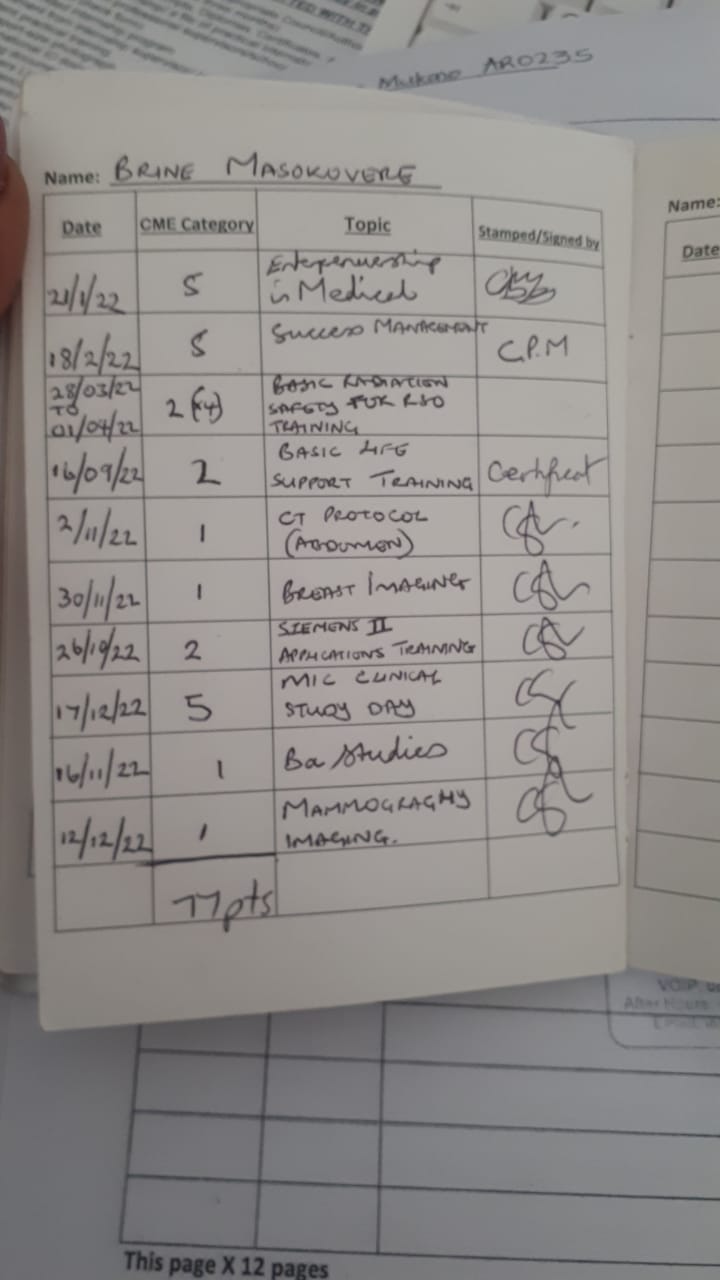 Mukono AR0235
Name: BRINE MASOKOVERE
Date CME Category Topic Stamped/Signed by
21/1/22 5 Enterpenuership
in Medical
18/2/22 5 Success MANAGEMENT C.P.M
28/03/22
TO
01/04/22 2 (x4) BASIC RADIATION
SAFETY FOR RSO
TRAINING
16/09/22 2 BASIC LIFE
SUPPORT TRAINING Certificat
2/11/22 1 CT PROTOCOL
(ABDOUMEN)
30/11/22 1 BREAST IMAGING
26/10/22 2 SIEMENS II
APPLICATIONS TRAINING
17/12/22 5 MIC CLINICAL
STUDY DAY
16/11/22 1 Ba Studies
12/12/22 1 MAMMOGRAGHY
IMAGING.
77pts
Name:
Date
VOIP
After Hours
This page X 12 pages